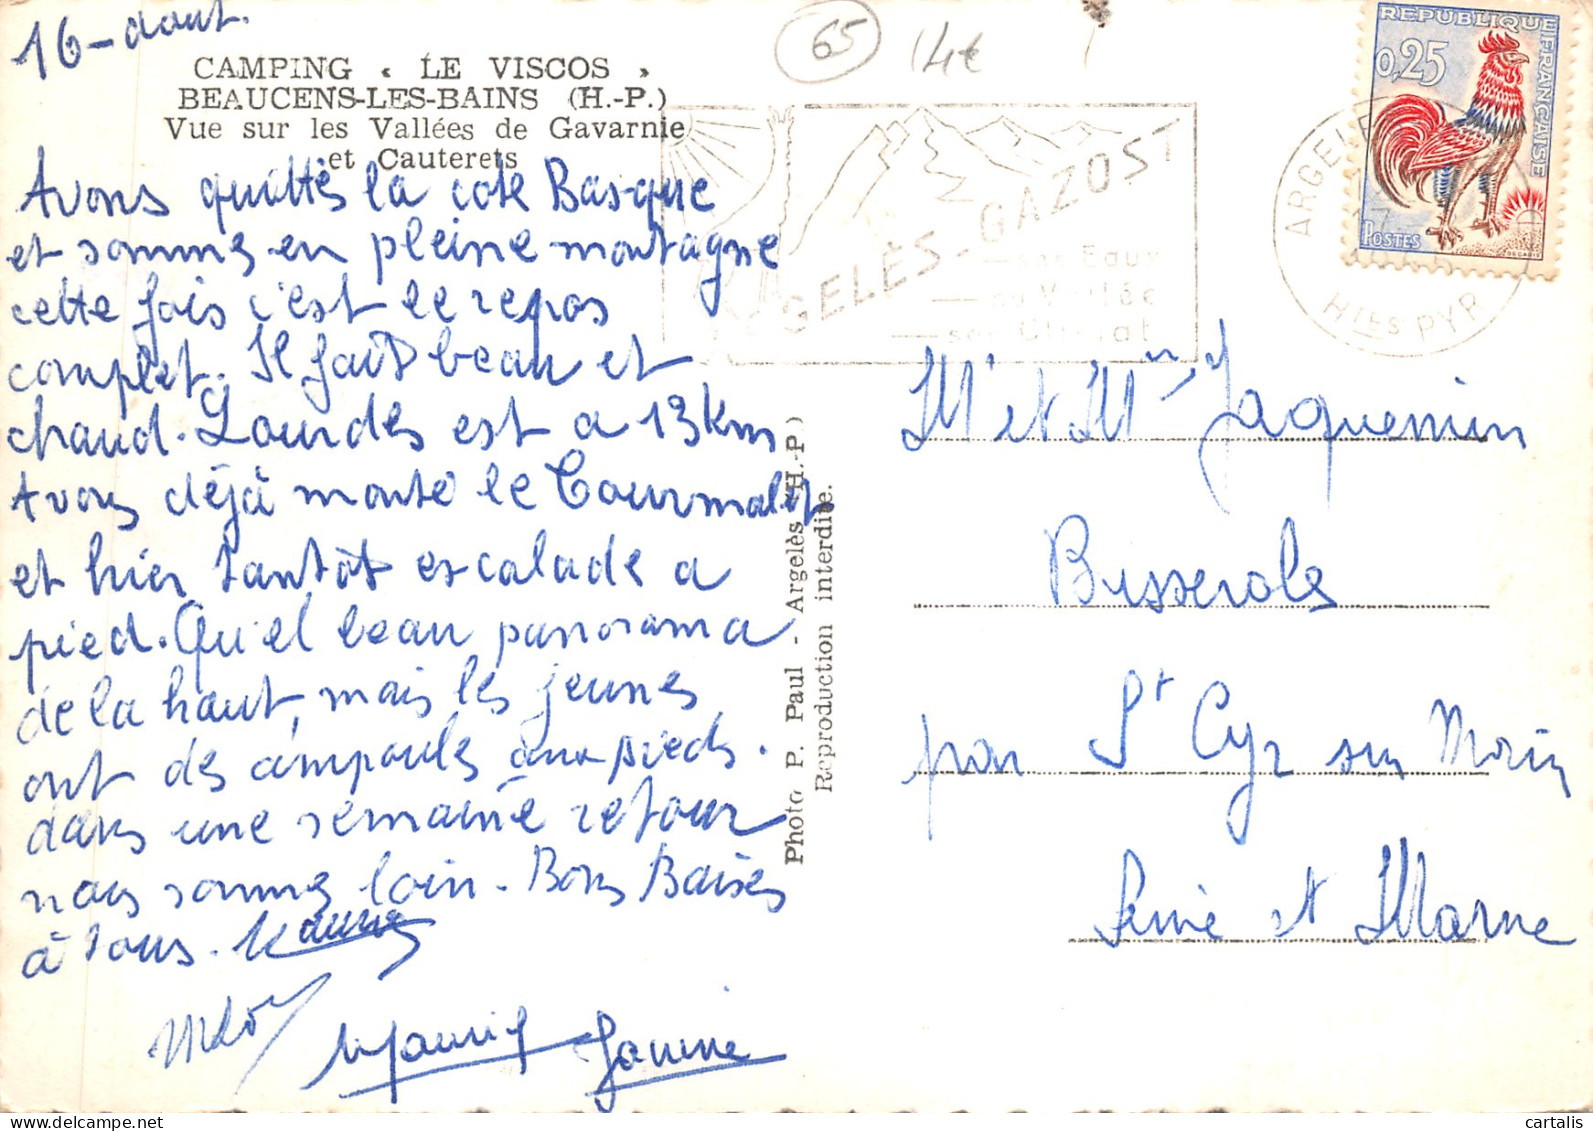 16-aout.
CAMPING « LE VISCOS »
BEAUCENS-LES-BAINS (H.-P.)
Vue sur les Vallées de Gavarnie
et Cauterets
Avons quittés la cote Basque
et sommes en pleine montagne
cette fois c'est le repos
complet. Il fait beau et
chaud. Lourdes est a 13 km
Avons déjà monté le Tourmalet
et hier tantôt escalade a
pied. Quel beau panorama
de la haut, mais les jeunes
ont des ampoules aux pieds.
dans une semaine retour
nous sommes loin. Bons Baises
à tous.
Maurice
Janine
Photo P. Paul - Argelès (H.-P)
Reproduction interdite.
65
14€
ARGELÈS-GAZOST
ses Eaux
sa Vallée
son Climat
ARGELE
17
HtES PYR
REPUBLIQUE FRANÇAISE
0,25
POSTES
DECARIS
M. et Mme Jaquemin
Busserole
par St Cyr sur Morin
Seine et Marne
cartalis